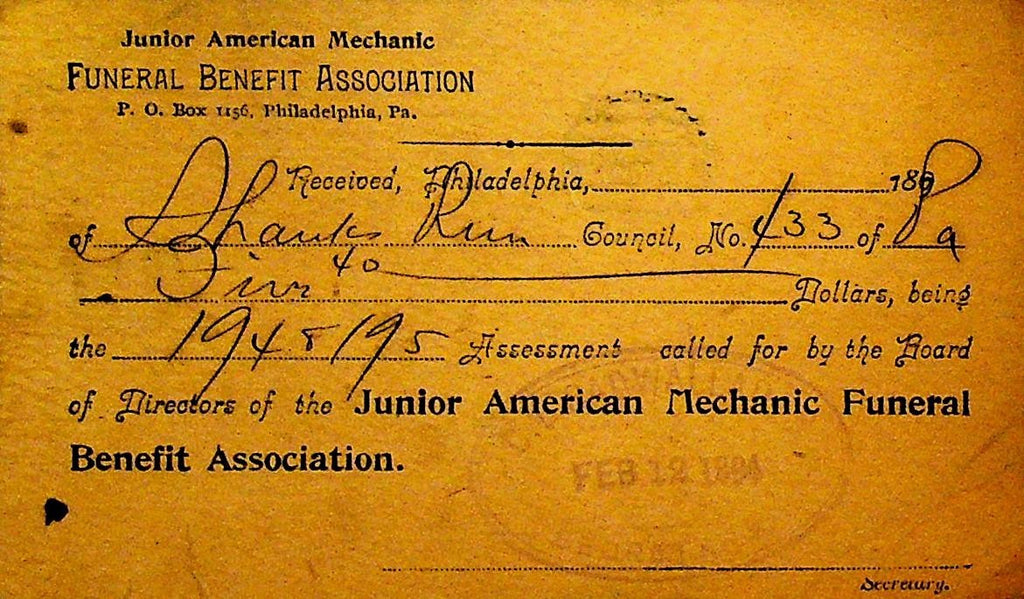 Junior American Mechanic
FUNERAL BENEFIT ASSOCIATION
P. O. Box 1156, Philadelphia, Pa.
Received, Philadelphia, 189
of Shanks Run Council, No. 433 of Pa
Five 40 Dollars, being
the 194 & 195 Assessment called for by the Board
of Directors of the Junior American Mechanic Funeral
Benefit Association.
FEB 12 1894
Secretary.